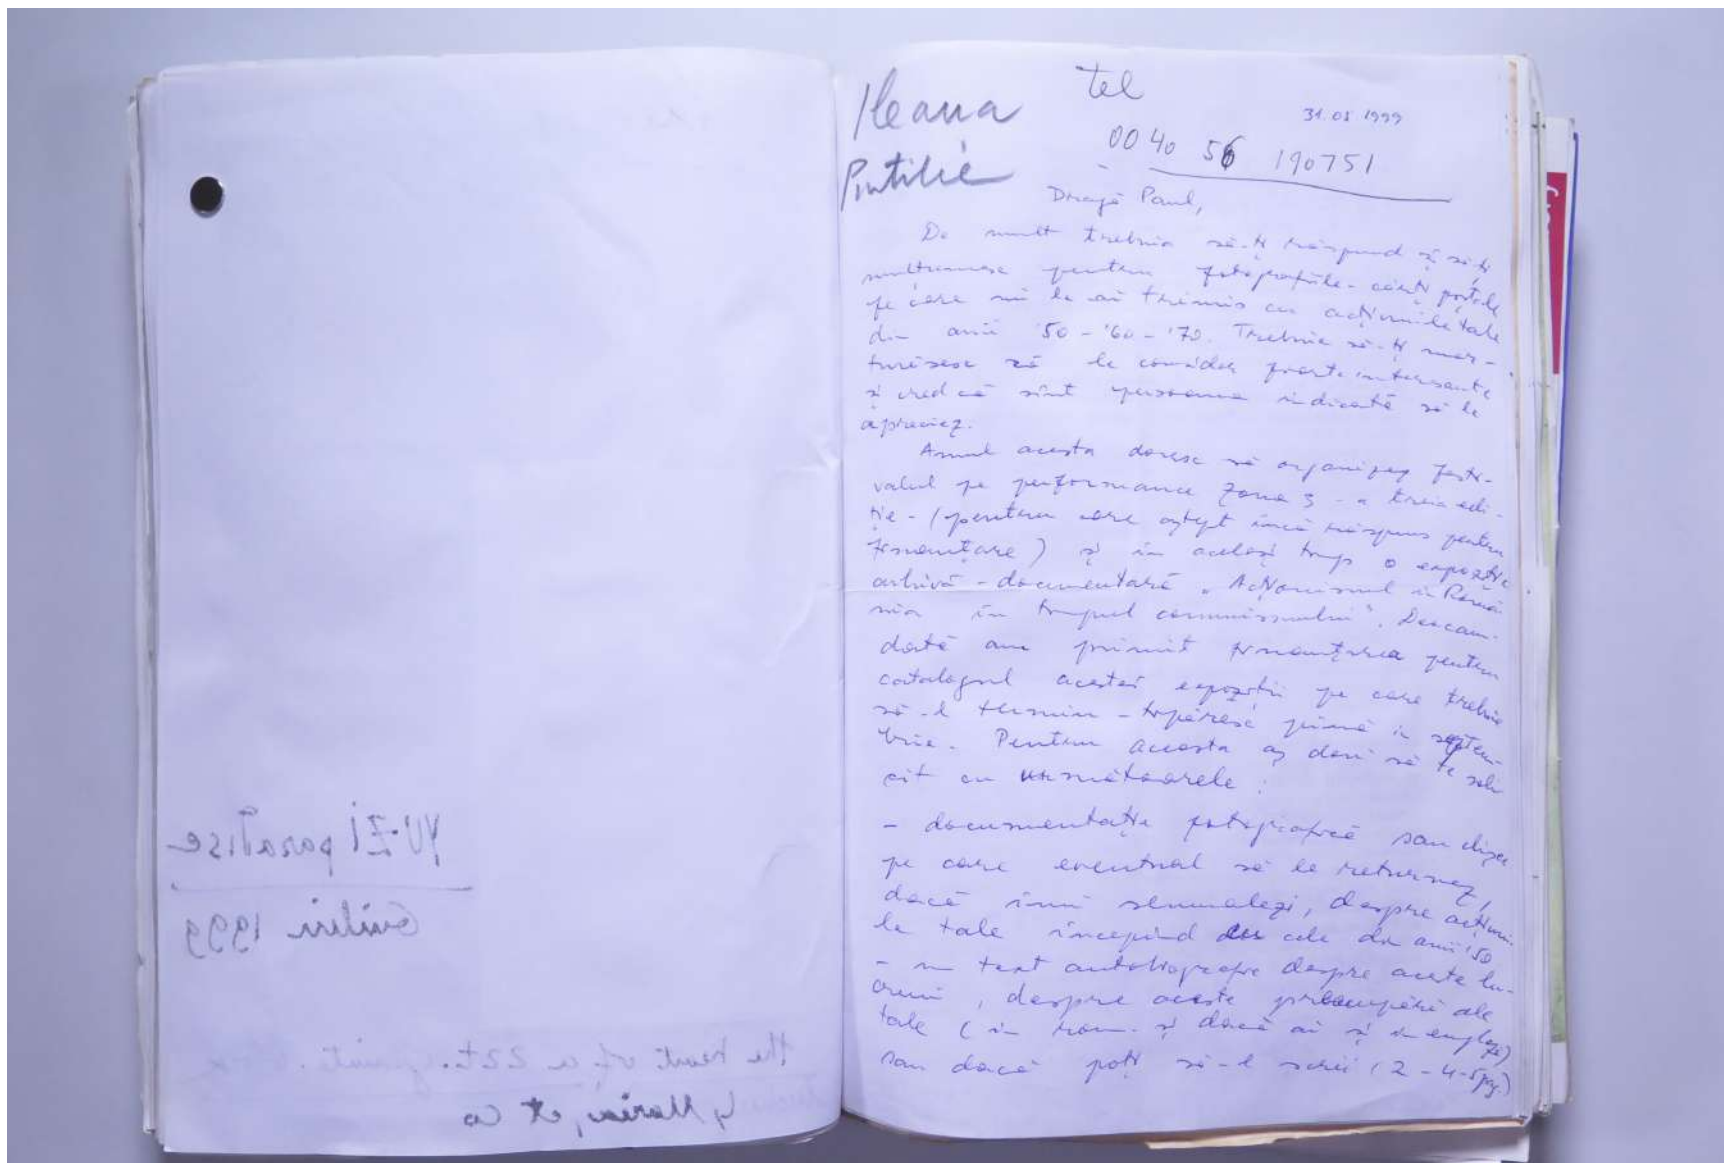 YU-ZI paradise
Guilin 1999
the
of a
Maria, et co
Ileana
Pintilie
tel
0040 56 190751
31.05 1999
Dragă Paul,
De mult trebuia să-ți răspund și să-ți
mulțumesc pentru fotografiile-cărți poștale
pe care mi le-ai trimis cu acțiunile tale
din anii '50-'60-'70. Trebuie să-ți măr-
turisesc că le consider foarte interesante
și cred că sînt persoana indicată să le
apreciez.
Anul acesta doresc să organizez festi-
valul pe performance Zona 3 - a treia edi-
ție - (pentru care aștept încă răspuns pentru
finanțare) și în același timp o expoziție
arhivă-documentară „Acționismul în Româ-
nia în timpul comunismului". Deocam-
dată am primit finanțarea pentru
catalogul acestei expoziții pe care trebuie
să-l termin-tipăresc pînă în septem-
brie. Pentru aceasta aș dori să te soli-
cit cu următoarele:
- documentație fotografică sau clișee
pe care eventual să le returnez,
dacă îmi semnalezi, despre acțiuni-
le tale începînd cu cele din anii '50
- un text autobiografic despre aceste lu-
crări, despre aceste preocupări ale
tale (în rom. și dacă ai și în engleză)
sau dacă poți să-l scrii (2-4-5 pag.)